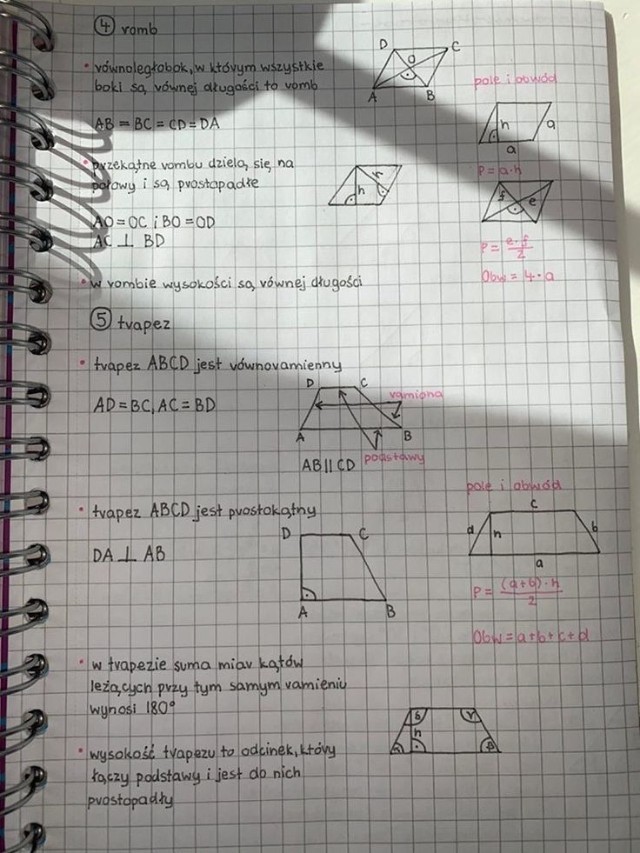 ④ romb
• równoległobok, w którym wszystkie
boki są równej długości to romb
AB = BC = CD = DA
D C
O
A B
pole i obwód
h a
a
P = a·h
• przekątne rombu dzielą się na
połowy i są prostopadłe
AO = OC i BO = OD
AC ⊥ BD
h h
f e
P = e·f/2
Obw = 4·a
• w rombie wysokości są równej długości
⑤ trapez
• trapez ABCD jest równoramienny
AD = BC, AC = BD
D C
ramiona
A B
AB || CD podstawy
• trapez ABCD jest prostokątny
DA ⊥ AB
D C
A B
pole i obwód
c
d h b
a
P = (a+b)·h/2
Obw = a+b+c+d
• w trapezie suma miar kątów
leżących przy tym samym ramieniu
wynosi 180°
h
• wysokość trapezu to odcinek, który
łączy podstawy i jest do nich
prostopadły